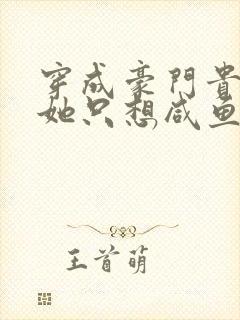 穿成豪門貴
她只想咸鱼
王首萌